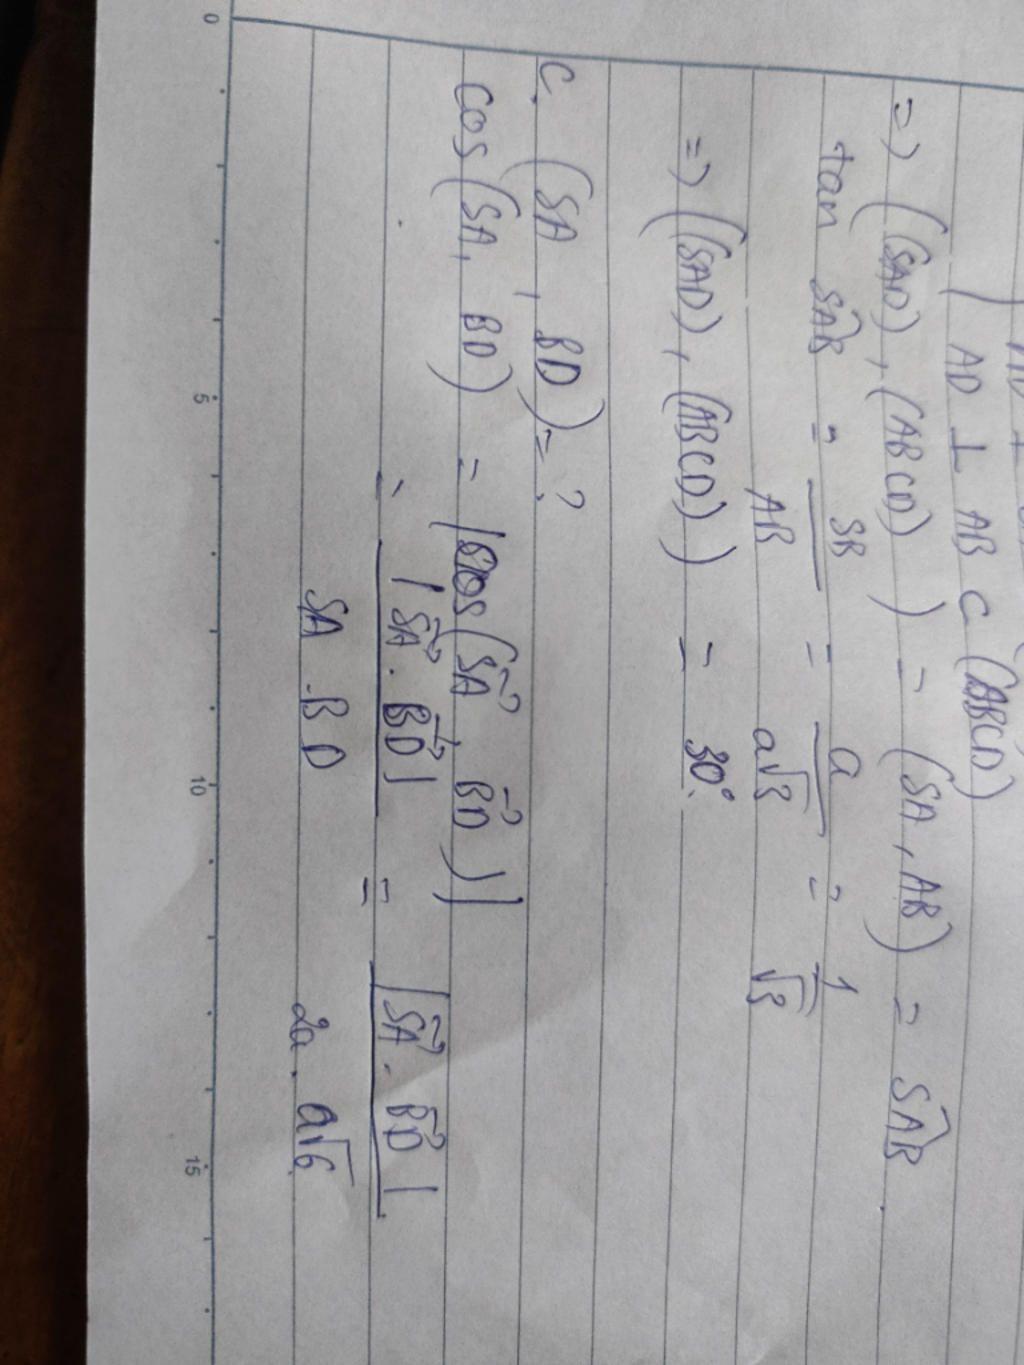 AD ⊥ AB ⊂ (ABCD)
=> ((SAD), (ABCD)) = (SA, AB) = SAB
tan SAB = SB / AB = a / a√3 = 1 / √3
=> ((SAD), (ABCD)) = 30°.
c. (SA, BD) = ?
cos(SA, BD) = |cos(SA, BD)|
= |SA . BD| / SA . BD = |SA . BD| / 2a . a√6
0 5 10 15